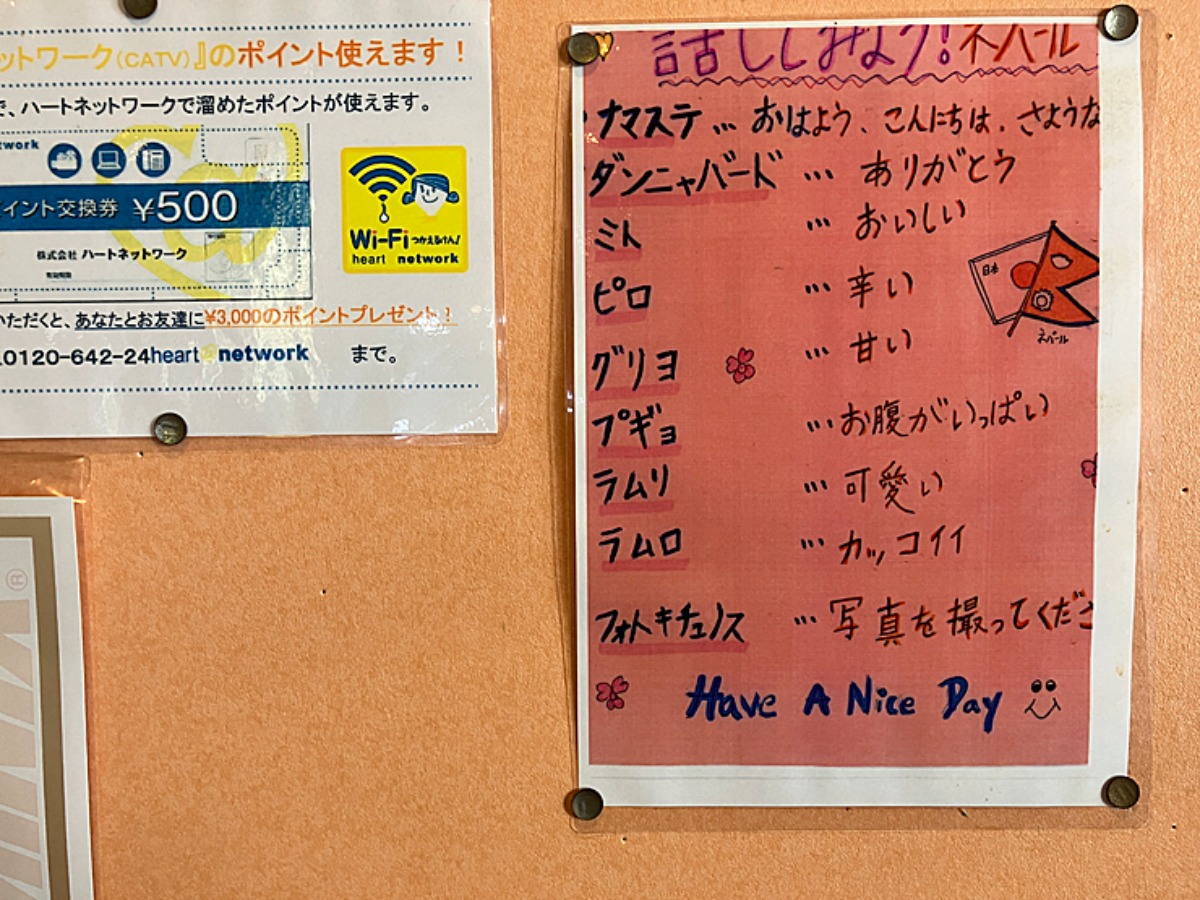 ットワーク(CATV)』のポイント使えます！
で、ハートネットワークで溜めたポイントが使えます。
twork
イント交換券 ¥500
株式会社 ハートネットワーク
Wi-Fi つかえるけん!
heart network
いただくと、あなたとお友達に¥3,000のポイントプレゼント！
0120-642-24heart network まで。
®
話ししみよう！ネパール
ナマステ … おはよう、こんにちは、さような
ダンニャバード … ありがとう
ミト … おいしい
ピロ … 辛い
グリヨ … 甘い
プギョ … お腹がいっぱい
ラムリ … 可愛い
ラムロ … カッコイイ
フォトキチュノス … 写真を撮ってくださ
日本
ネパール
Have A Nice Day